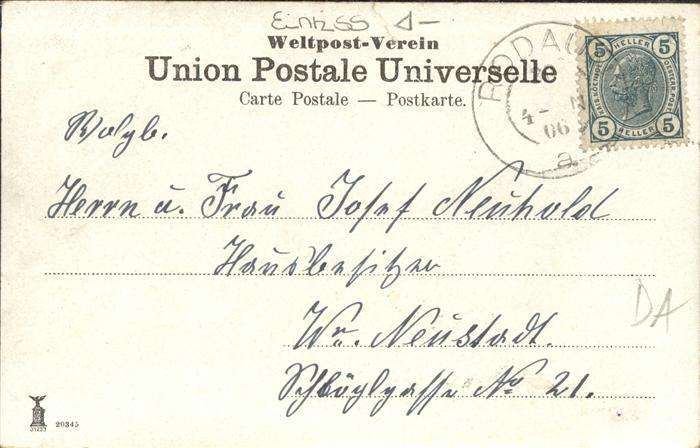 Weltpost-Verein
Union Postale Universelle
Carte Postale — Postkarte.
RODAU
4-
06
a
5 HELLER 5
5 HELLER 5
Wolgb.
Herrn u. Frau Josef Neuhold
Hausbesitzer
Wr. Neustadt.
Schlöglgasse No 21.
DA
20345